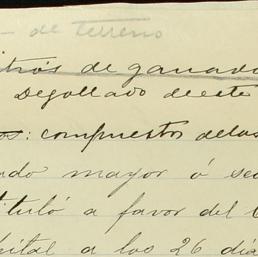 - de terreno
itios de ganado
Degollado de este
os: compuestos delas
ndo mayor ó sea
tituló a favor del
pital a los 26 dia